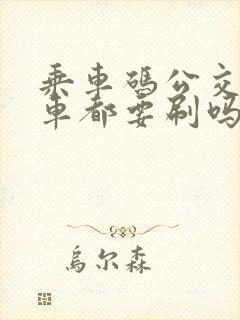 乘車碼公交
車都要刷吗
烏尔森